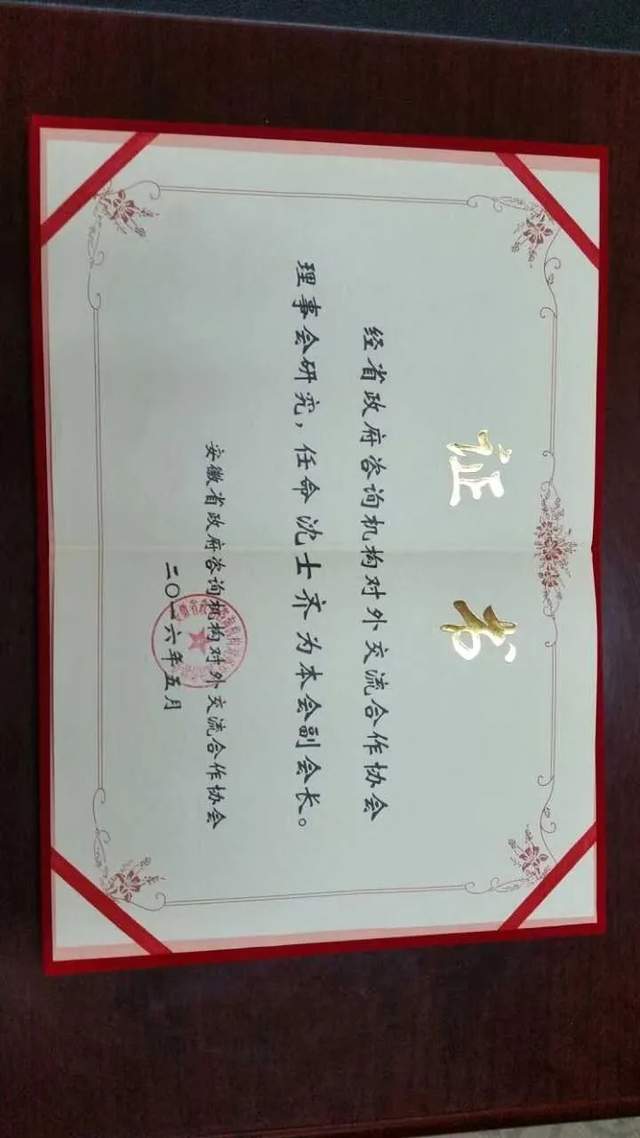 证书
经省政府咨询机构对外交流合作协会
理事会研究，任命沈士齐为本会副会长。
安徽省政府咨询机构对外交流合作协会
二〇一六年五月